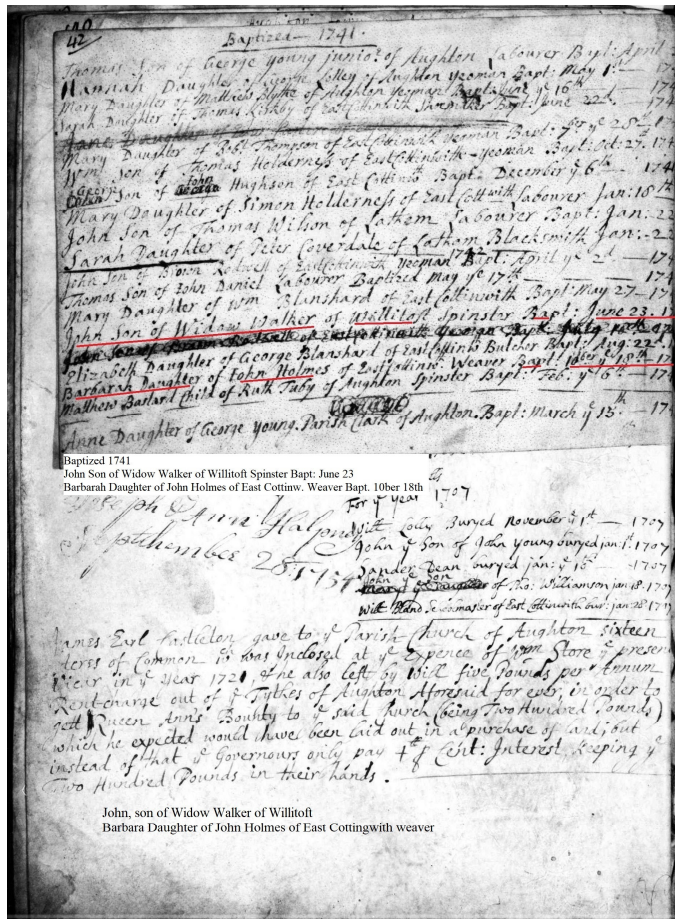 42
Baptized — 1741.
Thomas Son of George young junior of Aughton Labourer Bapt: April
Hannah Daughter of George Lolley of Aughton yeoman Bapt: May 1st — 17
Mary Daughter of Matthew Blythe of Aughton yeoman Bapt: June ye 16th — 174
Sarah Daughter of Thomas Kirkby of East Cottinwith Bapt: June 22d — 174
Mary Daughter of Robt Thompson of East Cottinwith yeoman Bapt: 7br ye 28th 17
Wm Son of Thomas Holderness of East Cottinwith yeoman Bapt: Oct: 27. 174
George Son of John Hughson of East Cottinth Bapt: December ye 6th — 1741
Mary Daughter of Simon Holderness of East Cottwith Labourer Jan: 18th
John Son of Thomas Wilson of Lathem Labourer Bapt: Jan: 22
Sarah Daughter of Peter Coverdale of Latham Blacksmith Jan: 22
1742
John Son of Brown Rodwell of East Cottinwith yeoman Bapt: April ye 2d — 17
Thomas Son of John Daniel Labourer Baptized May ye 17th — 174
Mary Daughter of Wm Blanshard of East Cottinwith Bapt: May 27 — 17
John Son of Widow Walker of Willitoft Spinster Bapt: June 23. 17
Elizabeth Daughter of George Blanshard of East Cottinw: Butcher Bapt: Aug: 22. 1
Barbarah Daughter of John Holmes of East Cottinw: Weaver Bapt: 10ber ye 18th — 17
Matthew Bastard Child of Ruth Tuby of Aughton Spinster Bapt: Feb: ye 16th — 17
Anne Daughter of George young. Parish Clark of Aughton. Bapt: March ye 15th — 174
Baptized 1741
John Son of Widow Walker of Willitoft Spinster Bapt: June 23
Barbarah Daughter of John Holmes of East Cottinw. Weaver Bapt. 10ber 18th
For ye year 1707
Joseph Ann Halpney
Septhember 28 1754
Will Lolly Buryed november ye 1st — 1707
John ye Son of John young buryed jan: 1st: 1707
Sander Dean buryed jan: ye 16th — 1707
John ye Son of Tho: Williamson jan 18. 1707
Will Bland Scoolmaster of East Cottinwith bur: jan 28. 1707
James Earl Castleton gave to ye Parish Church of Aughton Sixteen
Acres of Common its was Inclosed at ye Expence of Wm Store ye present
Vicar in ye Year 1721, & he also left by Will five Pounds per Annum
Rent-charge out of ye Tythes of Aughton Aforesaid for ever, in order to
gett Queen Ann's Bounty to ye said Church (being Two Hundred Pounds)
which he expected would have been laid out in a purchase of Land; but
instead of that ye Governours only pay 4th p Cent: Interest keeping ye
Two Hundred Pounds in their hands.
John, son of Widow Walker of Willitoft
Barbara Daughter of John Holmes of East Cottingwith weaver